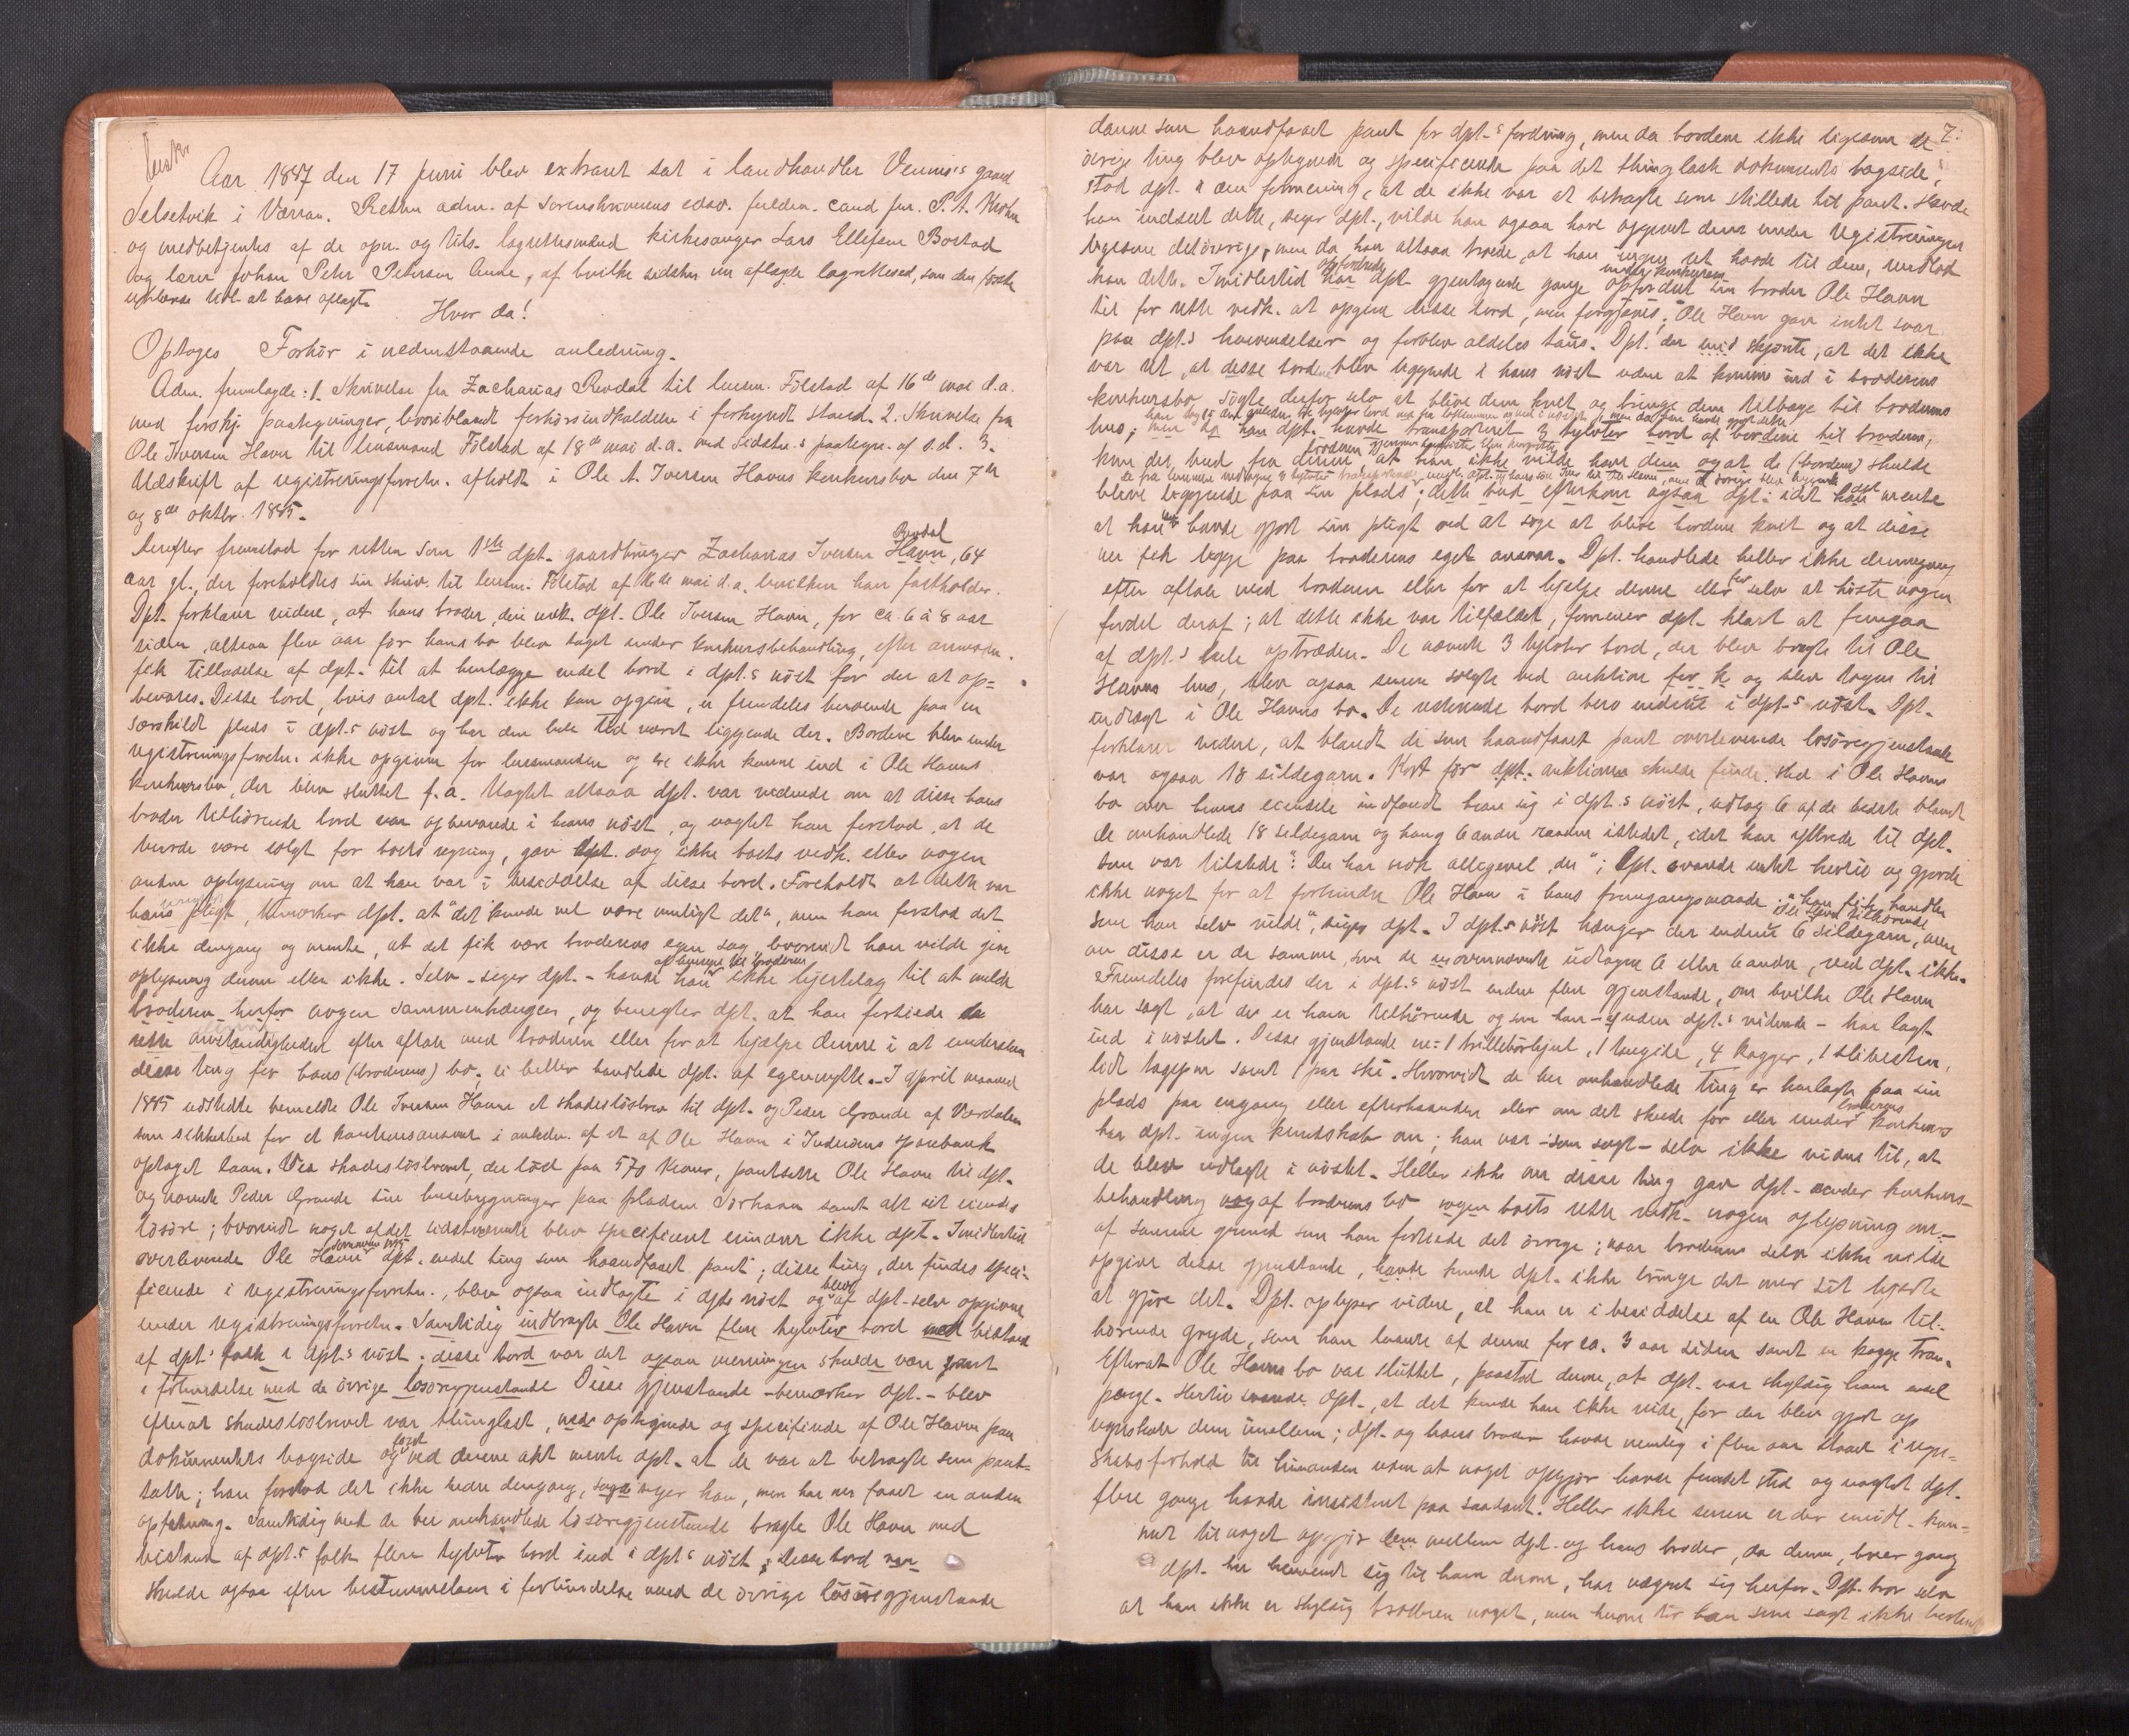 Aar 1887 den 17 juni blev extraret sat i landhandler Vennes's gaard
Selsetvik i Værran. Retten adm. af Sorenskriverens edsv. fuldm. cand jur. P. A. Mohn
og medbetjentes af de opn. og tils. lagrettesmænd kirkesanger Lars Ellefsen Bostad
og lærer Johan Peter Petersen Aune, af hvilke sidstn. nu aflagde lagretteed, som den første
erklærede tidl. at have aflagt.
Hvor da!
Optoges Forhør i nedenstaaende anledning.
Adm. fremlagde: 1. Skrivelse fra Zacharias Rendal til lensm. Følstad af 16de mai d.a.
med forskj. paategninger, hvoriblandt forhørsindkaldelse i forkyndt stand. 2. Skrivelse fra
Ole Iversen Havn til lensmand Følstad af 18de mai d.a. med Sidstn.s paategn. af s.d. 3.
Udskrift af registreringsforretn. afholdt i Ole A. Iversen Havns konkursbo den 7de
og 8de oktbr. 1885.
Derefter fremstod for retten som 1ste dpt. gaardbruger Zacharias Iversen Havn, Rendal 64
aar gl., der foreholdtes sin skriv. til lensm. Følstad af 16de mai d.a. hvilken han fastholder.
Dpt. forklarer videre, at hans broder, den medk. dpt. Ole Iversen Havn, for ca. 6 à 8 aar
siden, altsaa flere aar før hans bo blev taget under konkursbehandling, efter anmodn.
fik tilladelse af dpt. til at henlægge endel bord i dpt.s nöst for der at op=
bevares. Disse bord, hvis antal dpt. ikke kan opgive, er fremdeles beroende paa en
særskildt plads i dpt.s nöst og har den hele tid været liggende der. Bordene blev under
registreringsforretn. ikke opgivne for lensmanden og er ikke komne ind i Ole Havns
konkursbo, der blev sluttet f.a. Uagtet altsaa dpt. var vidende om at disse hans
broder tilhörende bord var opbevarede i hans nöst, og uagtet han forstod, at de
burde være solgt for boets regning, gav dpt. dog ikke boets vedk. eller nogen
anden oplysning om at han var i besiddelse af disse bord. Foreholdt at dette var
hans pligt, bemærker dpt. at "det kunde vel være muligt det", men han forstod det
ikke dengang og mente, at det fik være broderens egen sag, hvorvidt han vilde give
oplysning derom eller ikke. Selv - siger dpt. - havde han af hensyn til broderen ikke hjertelag til at melde
broderen herfor nogen sammenhængen, og benegter dpt. at han fortiede de
rette omstændigheder efter aftale med broderen eller for at hjælpe denne i at undersla
disse ting for hans (broderens) bo; ei heller handlede dpt. af egennytte. I april maaned
1885 udstedte bemeldte Ole Iversen Havn et skadeslösbrev til dpt. og Peder Grande af Værdalen
som sikkerhed for et kautionsansvar i anledn. af et af Ole Havn i Inderöens sparebank
optaget laan. Ved skadeslösbrevet, der löd paa 570 kroner, pantsatte Ole Havn til dpt.
og nævnte Peder Grande sine husebygninger paa pladsen Sörhavn samt alt sit eiende
lösöre; hvorvidt noget af det sidstnævnte blev specificeret erindrer ikke dpt. Imidlertid
overleverede Ole Havn sommeren 1885 dpt. endel ting som haandfaaet pant; disse ting, der findes speci-
ficerede i registreringsforretn., blev ogsaa indlagte i dpts nöst og blev af dpt. selv opgivne
under registreringsforretn. Samtidig indbragte Ole Havn flere tylvter bord med bistand
af dpts folk i dpt.s nöst; disse bord var det ogsaa meningen skulde være pant
i forbindelse med de övrige lösöregjenstande. Disse gjenstande - bemærker dpt. - blev
efterat skadeslösbrevet var thinglæst, opskrevne og specificerede af Ole Havn paa
dokumentets bagside og først ved denne akt mente dpt. at de var at betragte som pant-
satte; han forstod det ikke bedre dengang, siger han, men har nu faaet en anden
opfatning. Samtidig med de her omhandlede lösöregjenstande bragte Ole Havn med
bistand af dpt.s folk flere tylvter bord ind i dpts nöst; disse bord
skulde ogsaa efter bestemmelsen i forbindelse med de övrige lösöregjenstande
7.
danne som haandfaaet pant for dpt.s fordring, men da bordene ikke ligesom de
övrige ting blev optegnede og specificerede paa det thinglæste dokuments bagside,
stod dpt. i den formening, at de ikke var at betragte som stillede til pant. Havde
han indseet dette, siger dpt., vilde han ogsaa have opgivet dem under registreringen
ligesom detövrige, men da han altsaa troede, at han ingen ret havde til dem, undlod
han dette. Imidlertid har dpt. gjentagende gange opfordret under konkursen sin broder Ole Havn
til for rette vedk. at opgive disse bord, men forgjæves; Ole Havn gav intet svar
paa dpt.s henvendelser og forblev aldeles taus. Dpt. der skjönte, at det ikke
var ret, at disse bord blev liggende i hans nöst uden at komme ind i broderens
konkursbo, sögte derfor selv at blive dem kvit og bringe dem tilbage til broderens
hus; men da han dpt. havde transporteret 3 tylvter bord af bordene til broderen,
kom der bud fra denne at han ikke vilde have dem og at de (bordene) skulde
blive liggende paa sin plads; dette bud efterkom ogsaa dpt. idet han mente
at han havde gjort sin pligt ved at söge at blive bordene kvit og at disse
nu fik ligge paa broderens eget ansvar. Dpt. handlede heller ikke dennegang
efter aftale med broderen eller for at hjelpe denne eller for selv at höste nogen
fordel deraf; at dette ikke var tilfældet, formener dpt. klart at fremgaa
af dpt.s hele optræden. De nævnte 3 tylvter bord, der blev bragte til Ole
Havns hus, blev ogsaa senere solgte ved auktion og blev tagen til
indtægt i Ole Havns bo. De resterende bord bero endnu i dpt.s nöst. Dpt.
forklarer videre, at blandt de som haandfaaet pant overleverede lösöregjenstande
var ogsaa 18 sildegarn. Kort för dpt. auktionen skulde finde sted i Ole Havns
bo over hans eiendele indfandt han sig i dpt.s nöst, udtog 6 af de bedste blandt
de omhandlede 18 sildegarn og hang 6 andre istedet, idet han ytrede til dpt.
som var tilstede: "Du har nok alligevel, du"; dpt. svarede intet hertil og gjorde
ikke noget for at forhindre Ole Havn i hans fremgangsmaade; "han fik handle
som han selv vilde", siger dpt. I dpt.s nöst hænger der endnu 6 Ole Havn tilhörende sildegarn, men
om disse er de samme, som de ovennævnte udtagne 6 eller 6 andre, ved dpt. ikke.
Fremdeles forefindes der i dpt.s nöst endnu flere gjenstande, om hvilke Ole Havn
har sagt, at de er ham tilhörende og som han - uden dpt.s vidende - har lagt
ind i nöstet. Disse gjenstande er: 1 trillebörhjul, 1 , 4 kagger, 1 slibesten,
lidt tagspon samt 1 par ski. Hvorvidt de her omhandlede ting er henlagte paa sin
plads paa engang eller efterhaanden eller om det skeede för eller under broderens konkurs
har dpt. ingen kundskab om; han var - som sagt - selv ikke vidne til, at
de blev indlagte i nöstet. Heller ikke om disse ting gav dpt. under konkurs-
behandling af broderens bo boets rette vedk. nogen oplysning om,
af samme grund som han fortiede det övrige; naar broderen selv ikke vilde
opgive disse gjenstande, kunde dpt. ikke bringe det over sit hjerte
at gjöre det. Dpt. oplyser videre, at han er i besiddelse af en Ole Havn til-
hörende gryde, som han laante af denne for ca. 3 aar siden samt en kagge tran.
Efterat Ole Havns bo var sluttet, paastod denne, at dpt. var skyldig ham endel
penge. Hertil svarede dpt., at det kunde han ikke vide, för der blev gjort op
regnskab dem imellem; dpt. og hans broder havde nemlig i flere aar staaet i regn-
skabsforhold til hinanden uden at noget opgjör havde fundet sted og uagtet dpt.
flere gange havde insisteret paa saadant. Heller ikke senere er der imidl. kom-
met til noget opgjör mellem dpt. og hans broder, da denne, hver gang
dpt. har henvendt sig til ham derom, har vægret sig herfor. Dpt. tror selv
at han ikke er skyldig broderen noget, men herom tör han som sagt ikke bestemt